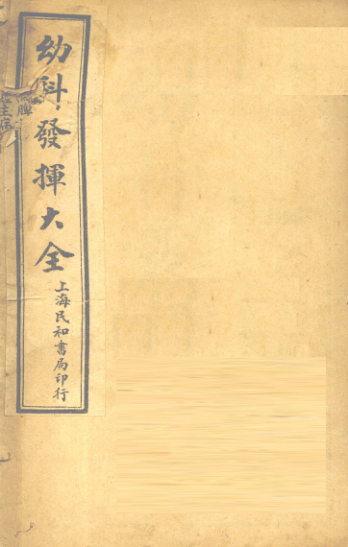 幼科發揮大全
上海民和書局印行